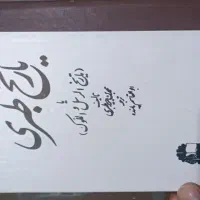 تاریخ طبری
یا
(تاریخ الرسل والملوک)
تألیف
محمد بن جریر طبری
ترجمه
ابوالقاسم پاینده